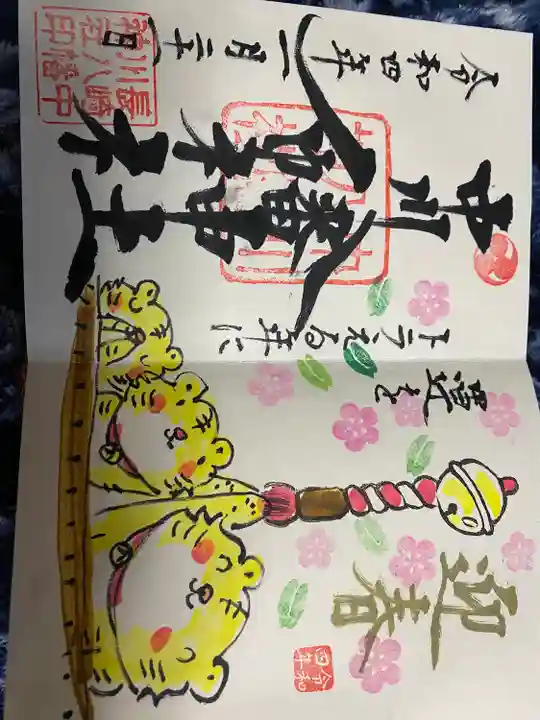 迎春
令和四年
運を
トラえる年に
中川八幡神社
令和四年一月二十日
長崎中川八幡神社印